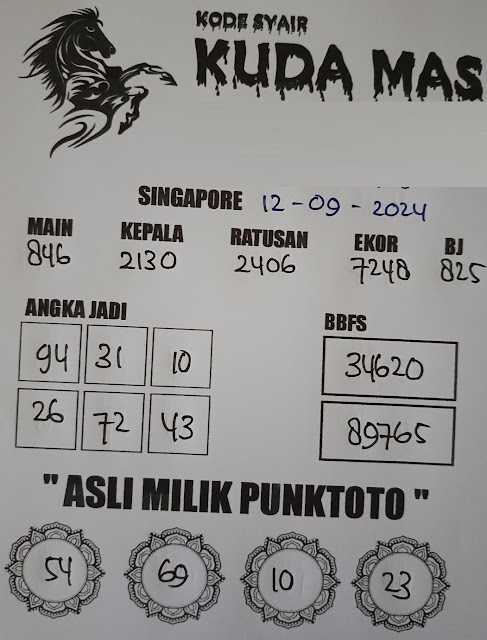 KODE SYAIR
KUDA MAS
SINGAPORE 12-09-2024
MAIN KEPALA RATUSAN EKOR BJ
846 2130 2406 7248 825
ANGKA JADI BBFS
94 31 10 34620
26 72 43 89765
" ASLI MILIK PUNKTOTO "
54 69 10 23